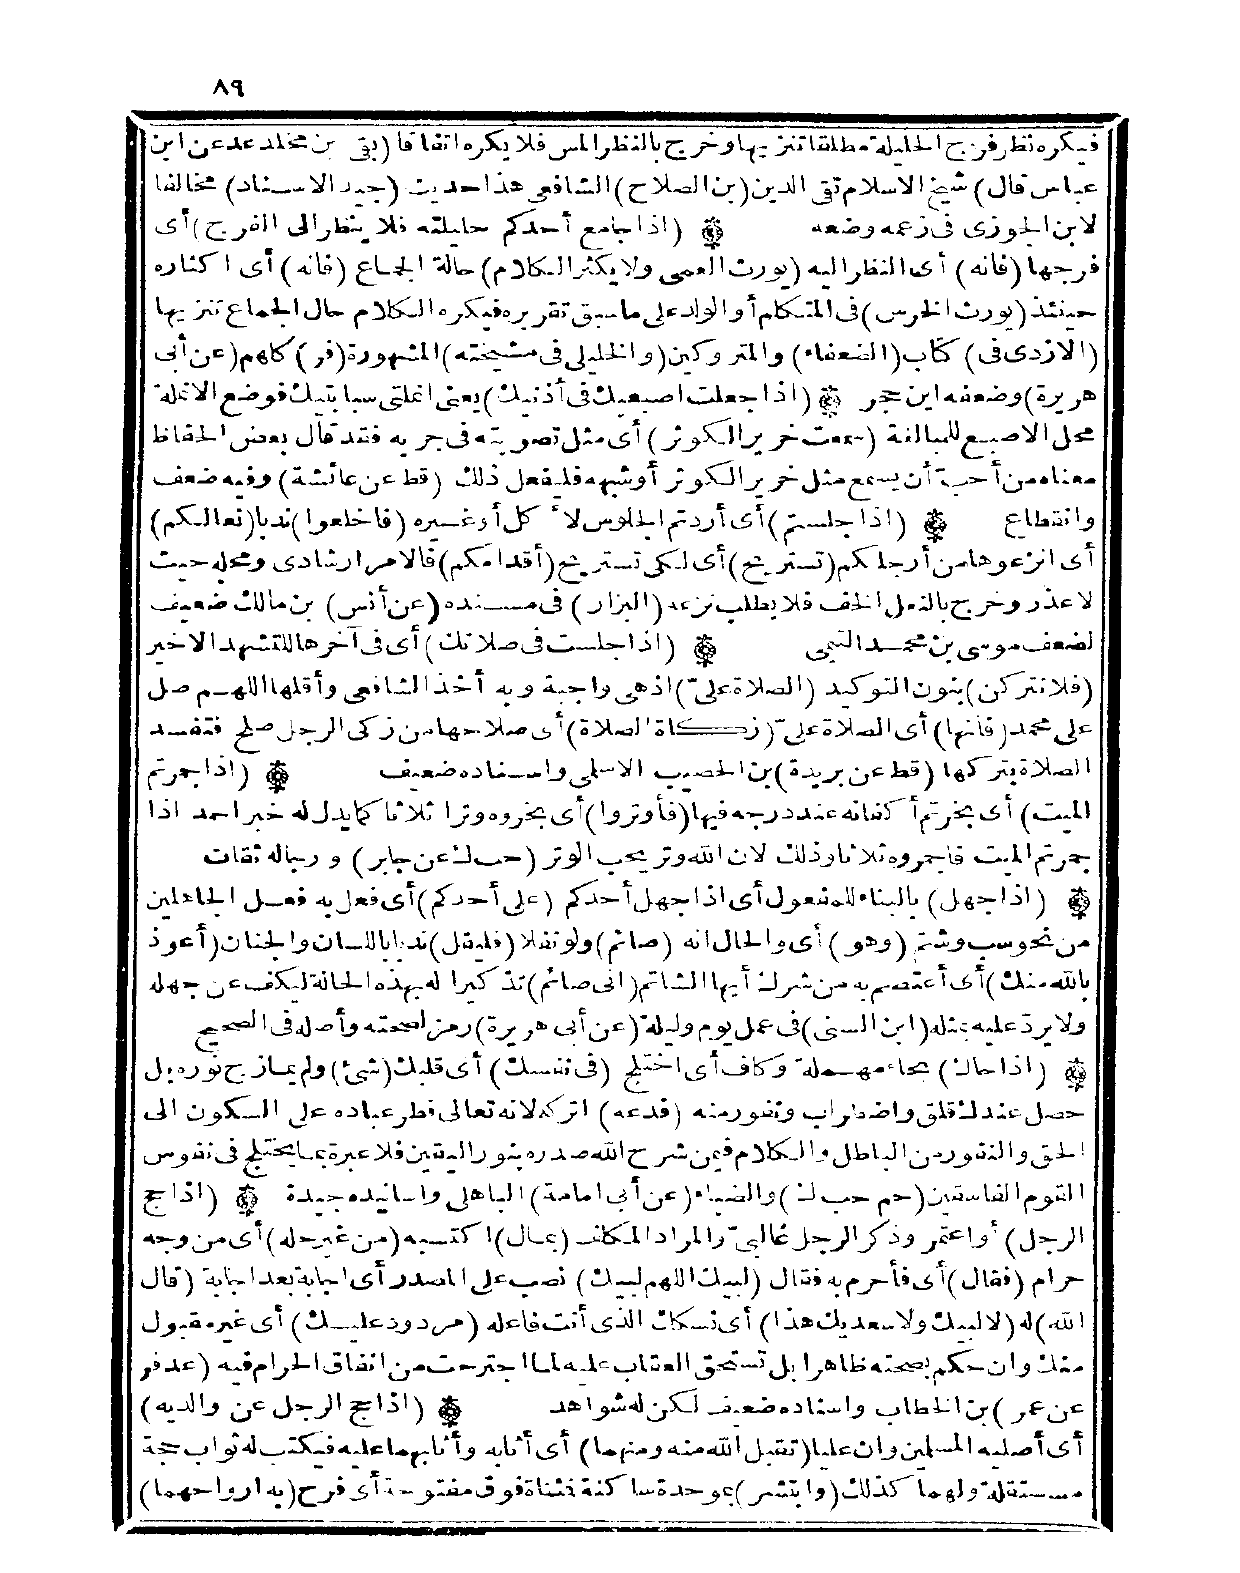 ٨٩
فيكره نظر فرج الحليلة مطلقا تنزيها وخرج بالنظر المس فلا يكره اتفاقا (بقى بن مخلد عد عن ابن
عباس قال) شيخ الاسلام تقى الدين (بن الصلاح) الشافعى هذا حديث (جيد الاسناد) مخالفا
لابن الجوزى فى زعمه وضعه (اذا جامع أحدكم حليلته فلا ينظر الى الفرج) أى
فرجها (فانه) أى النظر اليه (يورث العمى ولا يكثر الكلام) حالة الجماع (فانه) أى اكثاره
حينئذ (يورث الخرس) فى المتكلم أو الولد على ما سبق تقريره فيكره الكلام حال الجماع تنزيها
(الازدى فى) كتاب (الضعفاء) والمتروكين (والخليلى فى مشيخته) المشهورة (فر) كلهم (عن أبى
هريرة) وضعفه ابن حجر (اذا جعلت اصبعيك فى أذنيك) يعنى انملتى سبابتيك فوضع الانملة
محل الاصبع للمبالغة (سمعت خرير الكوثر) أى مثل تصويته فى جريه فقد قال بعض الحفاظ
معناه من أحب أن يسمع مثل خرير الكوثر أو شبهه فليفعل ذلك (قط عن عائشة) وفيه ضعف
وانقطاع (اذا جلستم) أى أردتم الجلوس لاكل أو غيره (فاخلعوا) ندبا (نعالكم)
أى انزعوها من أرجلكم (تستريح) أى لكى تستريح (أقدامكم) فالامر ارشادى ومحله حيث
لا عذر وخرج بالنعل الخف فلا يطلب نزعه (البزار) فى مسنده (عن أنس) بن مالك ضعيف
لضعف موسى بن محمد التيمى (اذا جلست فى صلاتك) أى فى آخرها للتشهد الاخير
(فلا تتركن) بنون التوكيد (الصلاة علىّ) اذ هى واجبة وبه أخذ الشافعى وأقلها اللهم صل
على محمد (فانها) أى الصلاة علىّ (زكاة الصلاة) أى صلاحها من زكى الرجل صلح فتفسد
الصلاة بتركها (قط عن بريدة) بن الحصيب الاسلمى واسناده ضعيف (اذا جمرتم
الميت) أى بخرتم أكفانه عند درجه فيها (فأوتروا) أى بخروه وترا ثلاثا كما يدل له خبر احمد اذا
جمرتم الميت فاجمروه ثلاثا وذلك لان الله وتر يحب الوتر (حب ك عن جابر) ورجاله ثقات
(اذا جهل) بالبناء للمفعول أى اذا جهل أحدكم (على أحدكم) أى فعل به فعل الجاهلين
من نحو سب وشتم (وهو) أى والحال انه (صائم) ولو نفلا (فليقل) ندبا باللسان والجنان (أعوذ
بالله منك) أى أعتصم به من شرك أيها الشاتم (انى صائم) تذكيرا له بهذه الحالة ليكف عن جهله
ولا يرد عليه بمثله (ابن السنى) فى عمل يوم وليلة (عن أبى هريرة) رمز لصحته وأصله فى الصحيح
(اذا حاك) بحاء مهملة وكاف أى اختلج (فى نفسك) أى قلبك (شئ) ولم يمازج نوره بل
حصل عندك قلق واضطراب ونفور منه (فدعه) اتركه لانه تعالى فطر عباده على السكون الى
الحق والنفور من الباطل والكلام فيمن شرح الله صدره بنور اليقين فلا عبرة بما يختلج فى نفوس
القوم الفاسقين (حم حب ك) والضياء (عن أبى امامة) الباهلى واسانيده جيدة (اذا حج
الرجل) أو اعتمر وذكر الرجل غالبىّ والمراد المكلف (بمال) اكتسبه (من غير حله) أى من وجه
حرام (فقال) أى فأحرم به فقال (لبيك اللهم لبيك) نصب على المصدر أى اجابة بعد اجابة (قال
الله) له (لا لبيك ولا سعديك هذا) أى نسكك الذى أنت فاعله (مردود عليك) أى غير مقبول
منك وان حكم بصحته ظاهرا بل تستحق العقاب عليه لما اجترحت من انفاق الحرام فيه (عد فر
عن عمر) بن الخطاب واسناده ضعيف لكن له شواهد (اذا حج الرجل عن والديه)
أى أصليه المسلمين وان عليا (تقبل الله منه ومنهما) أى أثابه وأثابهما عليه فيكتب له ثواب حجة
مستقلة ولهما كذلك (وابتشر) بموحدة ساكنة فمثناة فوق مفتوحة أى فرح (به ارواحهما)